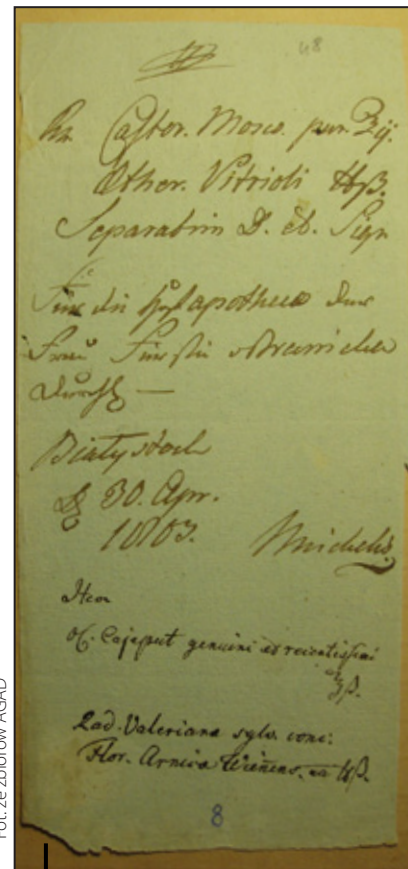 48
Rx Castor. Mosco. pur. ʒij.
Æther. Vitrioli ℔ß.
Separatim D. et. Sign
Für die Hofapothecke der
Frau Fürstin
Białystock
D 30. Apr.
1803. Michelis.
Item
Ol. Cajeput genuini et recentissimi
ʒß.
Rad. Valeriana sylv. conc:
Flor. Arnica Wienens. aa ℔ß.
8
Fot. ze zbiorów AGAD